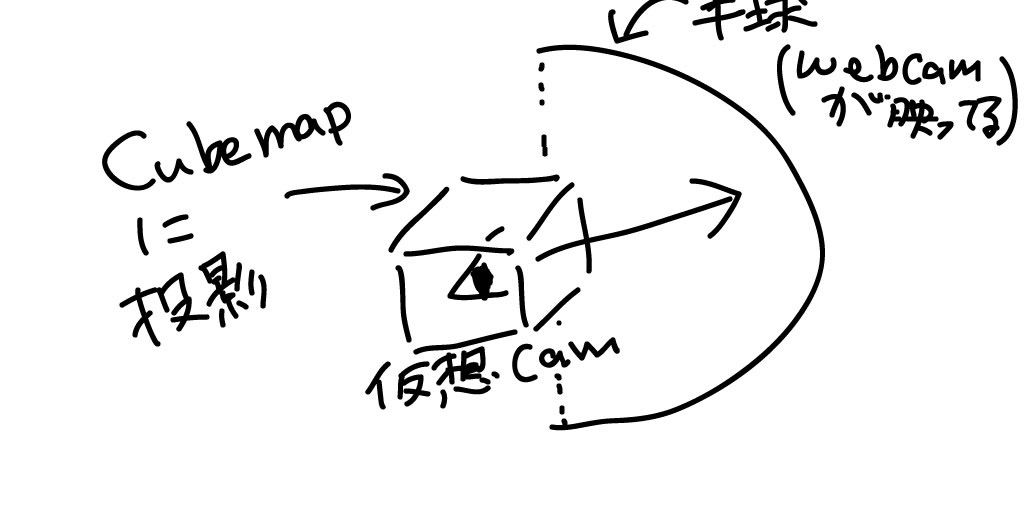 半球
(webcam
が映ってる)
Cubemap
に
投影
仮想cam